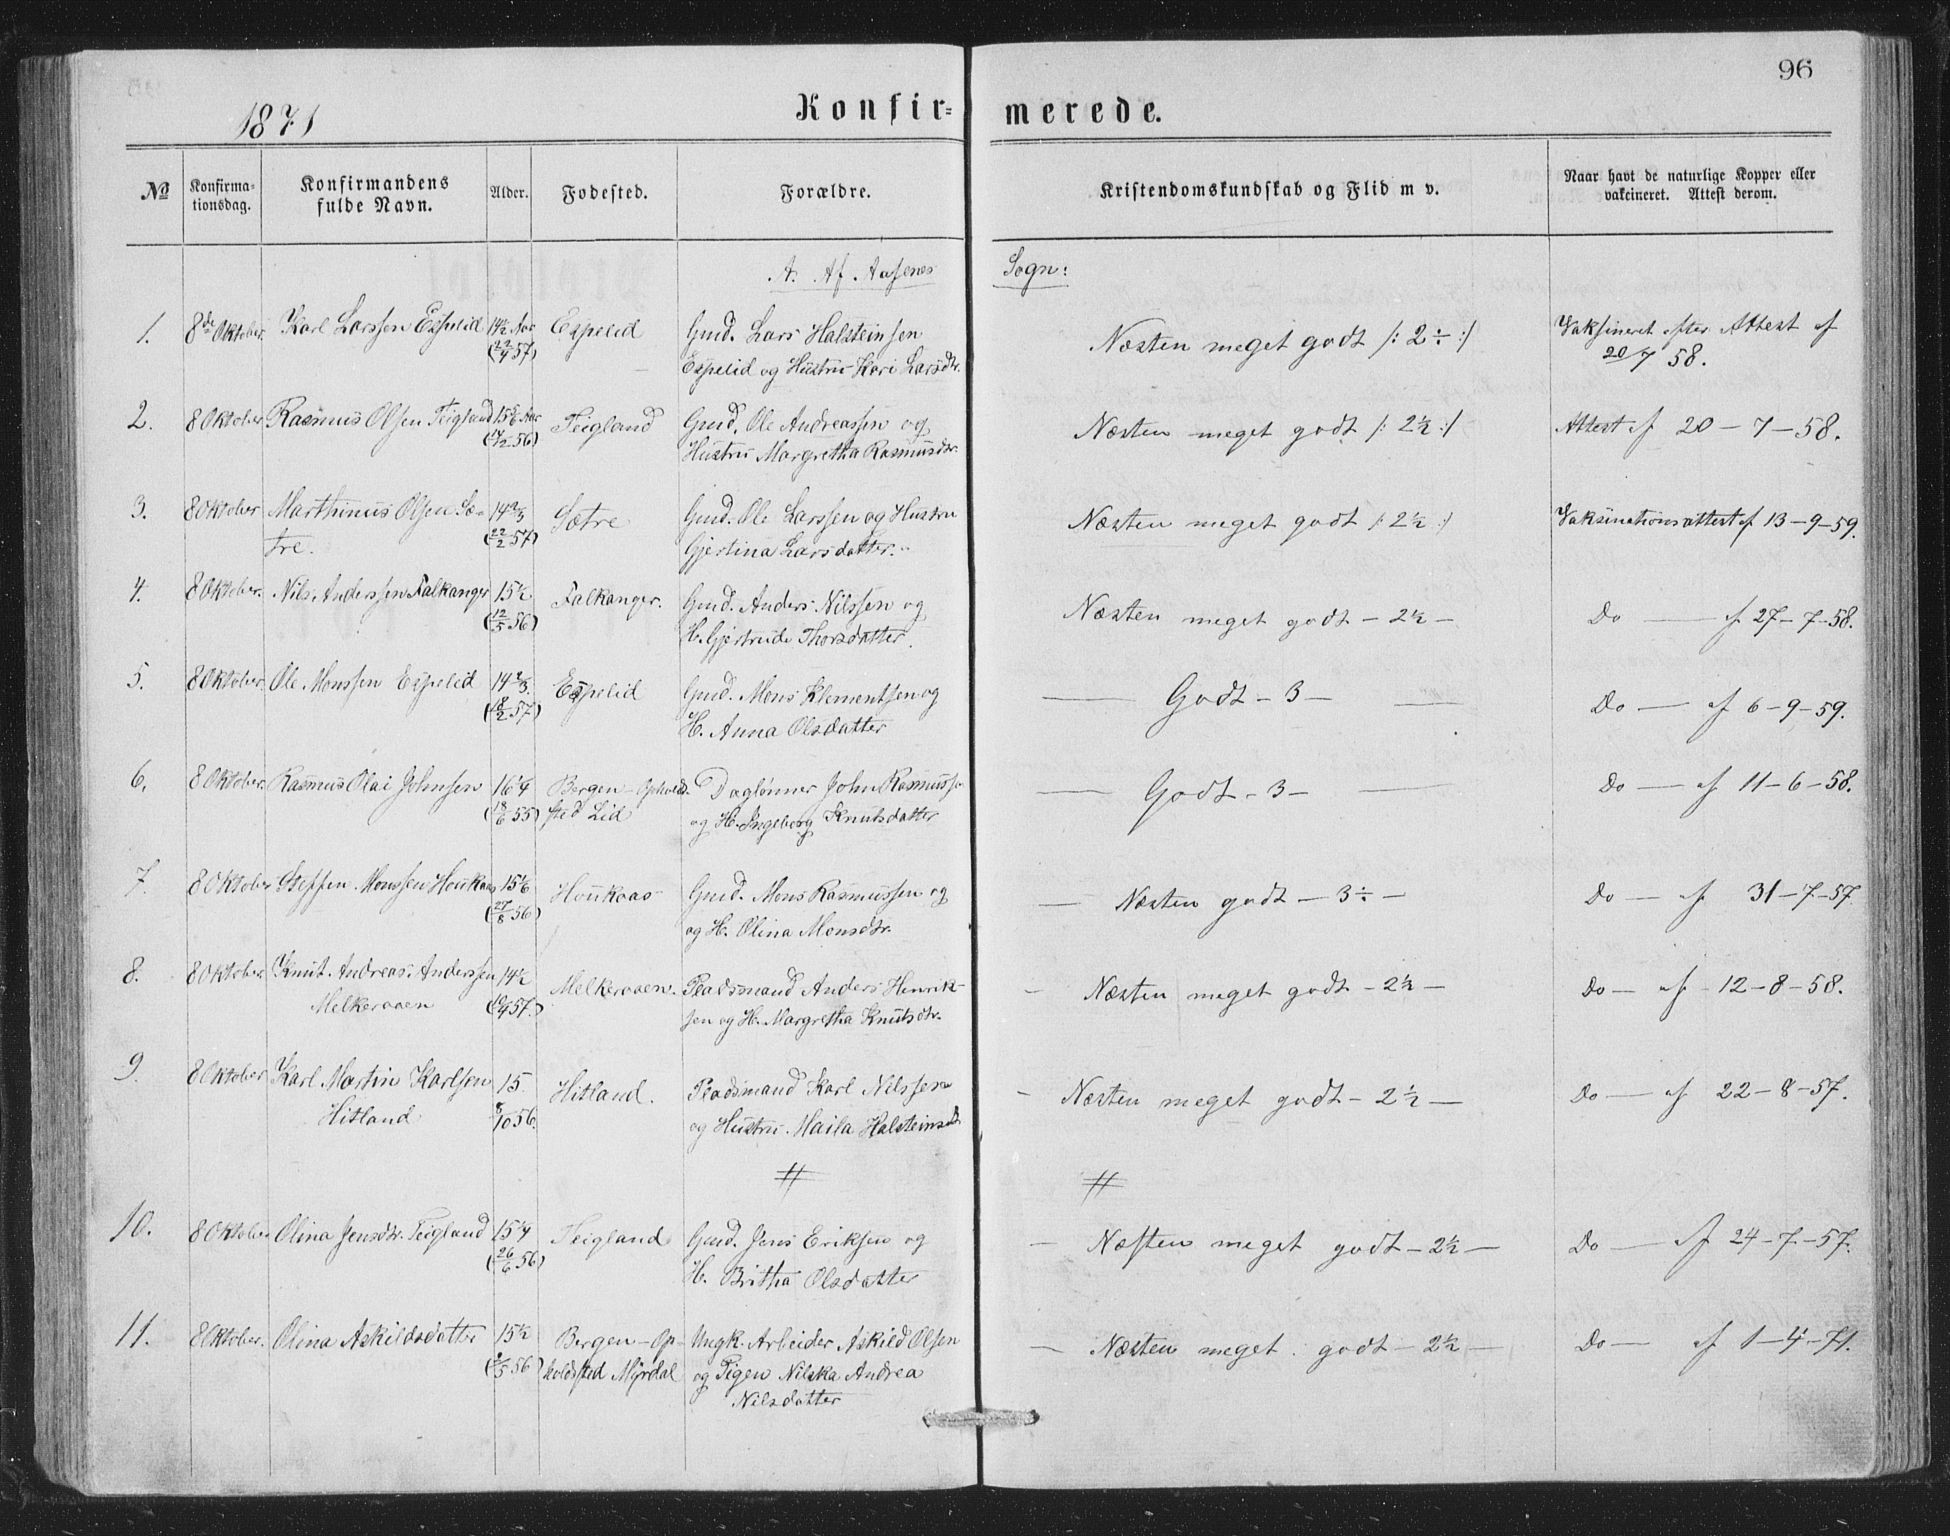 96
1871
Konfir= merede.
№ Konfirma= tionsdag. Konfirmandens fulde Navn. Alder. Fodested. Forældre. Kristendomskundskab og Flid m v. Naar havt de naturlige Kopper eller vakcineret. Attest derom.
A. Af Aasenes Sogn:
1. 8de Oktober Karl Larssen Espelid 14½ Aar Espelid Gmd. Lars Halsteinsen Næsten meget godt /: 2÷ :/ Vaksineret efter Attest af
(22/4 57) Espelid og Hustru Kari Larsdtr. 20/7 58.
2. 8 Oktober Rasmus Olsen Teigland Aar Teigland Gmd. Ole Andreassen og Næsten meget godt /: 2½ :/ Attest af 20-7-58.
Hustru Margretha Rasmusdtr.
3. 8 Oktober Marthinus Olsen Sæ- 14⅔ Sætre Gmd. Ole Larssen og Hustru Næsten meget godt /: 2½ :/ Vaksinationsattest af 13-9-59.
tre. (22/2 57) Gjertina Larsdatter.
4. 8 Oktober. Nils Anderssen Falkanger 15½ Falkanger. Gmd. Anders Nilssen og Næsten meget godt - 2½ - Do — af 27-7-58.
(12/5 56) H. Gjertrude Thorsdatter.
5. 8 Oktober Ole Monssen Espelid 14⅔ Espelid Gmd. Mons Klementsen og — Godt - 3 - — Do — af 6-9-59.
H. Anna Olsdatter
6. 8 Oktober. Rasmus Olai Johnsen 16¼ Bergen - Opholds- Daglønner John Rasmussen — Godt - 3 - — Do — af 11-6-58.
(18/6 55) sted Lid og H. Ingeborg Knutsdatter
7. 8 Oktober Steffen Monssen Houkaas 15⅙ Houkaas Gmd. Mons Rasmussen og — Næsten godt - 3÷ - Do — af 31-7-57
(27/8 56) og H. Olina Monsdtr.
8. 8 Oktober. Knut Andreas Anderssen 14½ Melkeraaen. Pladsmand Anders Henrik- - Næsten meget godt - 2½ - Do — af 12-8-58.
Melkeraaen sen og H. Margretha Knutsdtr.
9. 8 Oktober Karl Martin Karlsen 15 Hitland. Pladsmand Karl Nilssen - Næsten meget godt - 2½ - Do — af 22-8-57.
Hitland 8/10 56. og Hustru Maila Halsteinsd
10. 8 Oktober Olina Jensdtr. Teigland 15¼ Teigland Gmd. Jens Eriksen og - Næsten meget godt - 2½ - Do — af 24-7-57.
(26/6 56) H. Britha Olsdatter
11. 8 Oktober. Olina Askildsdatter 15½ Bergen - Op- Ungk. Arbeider Askild Olsen - Næsten meget godt - 2½ - Do — af 1-4-71.
holdssted Myrdal og Pigen Nilska Andrea
Nilsdatter